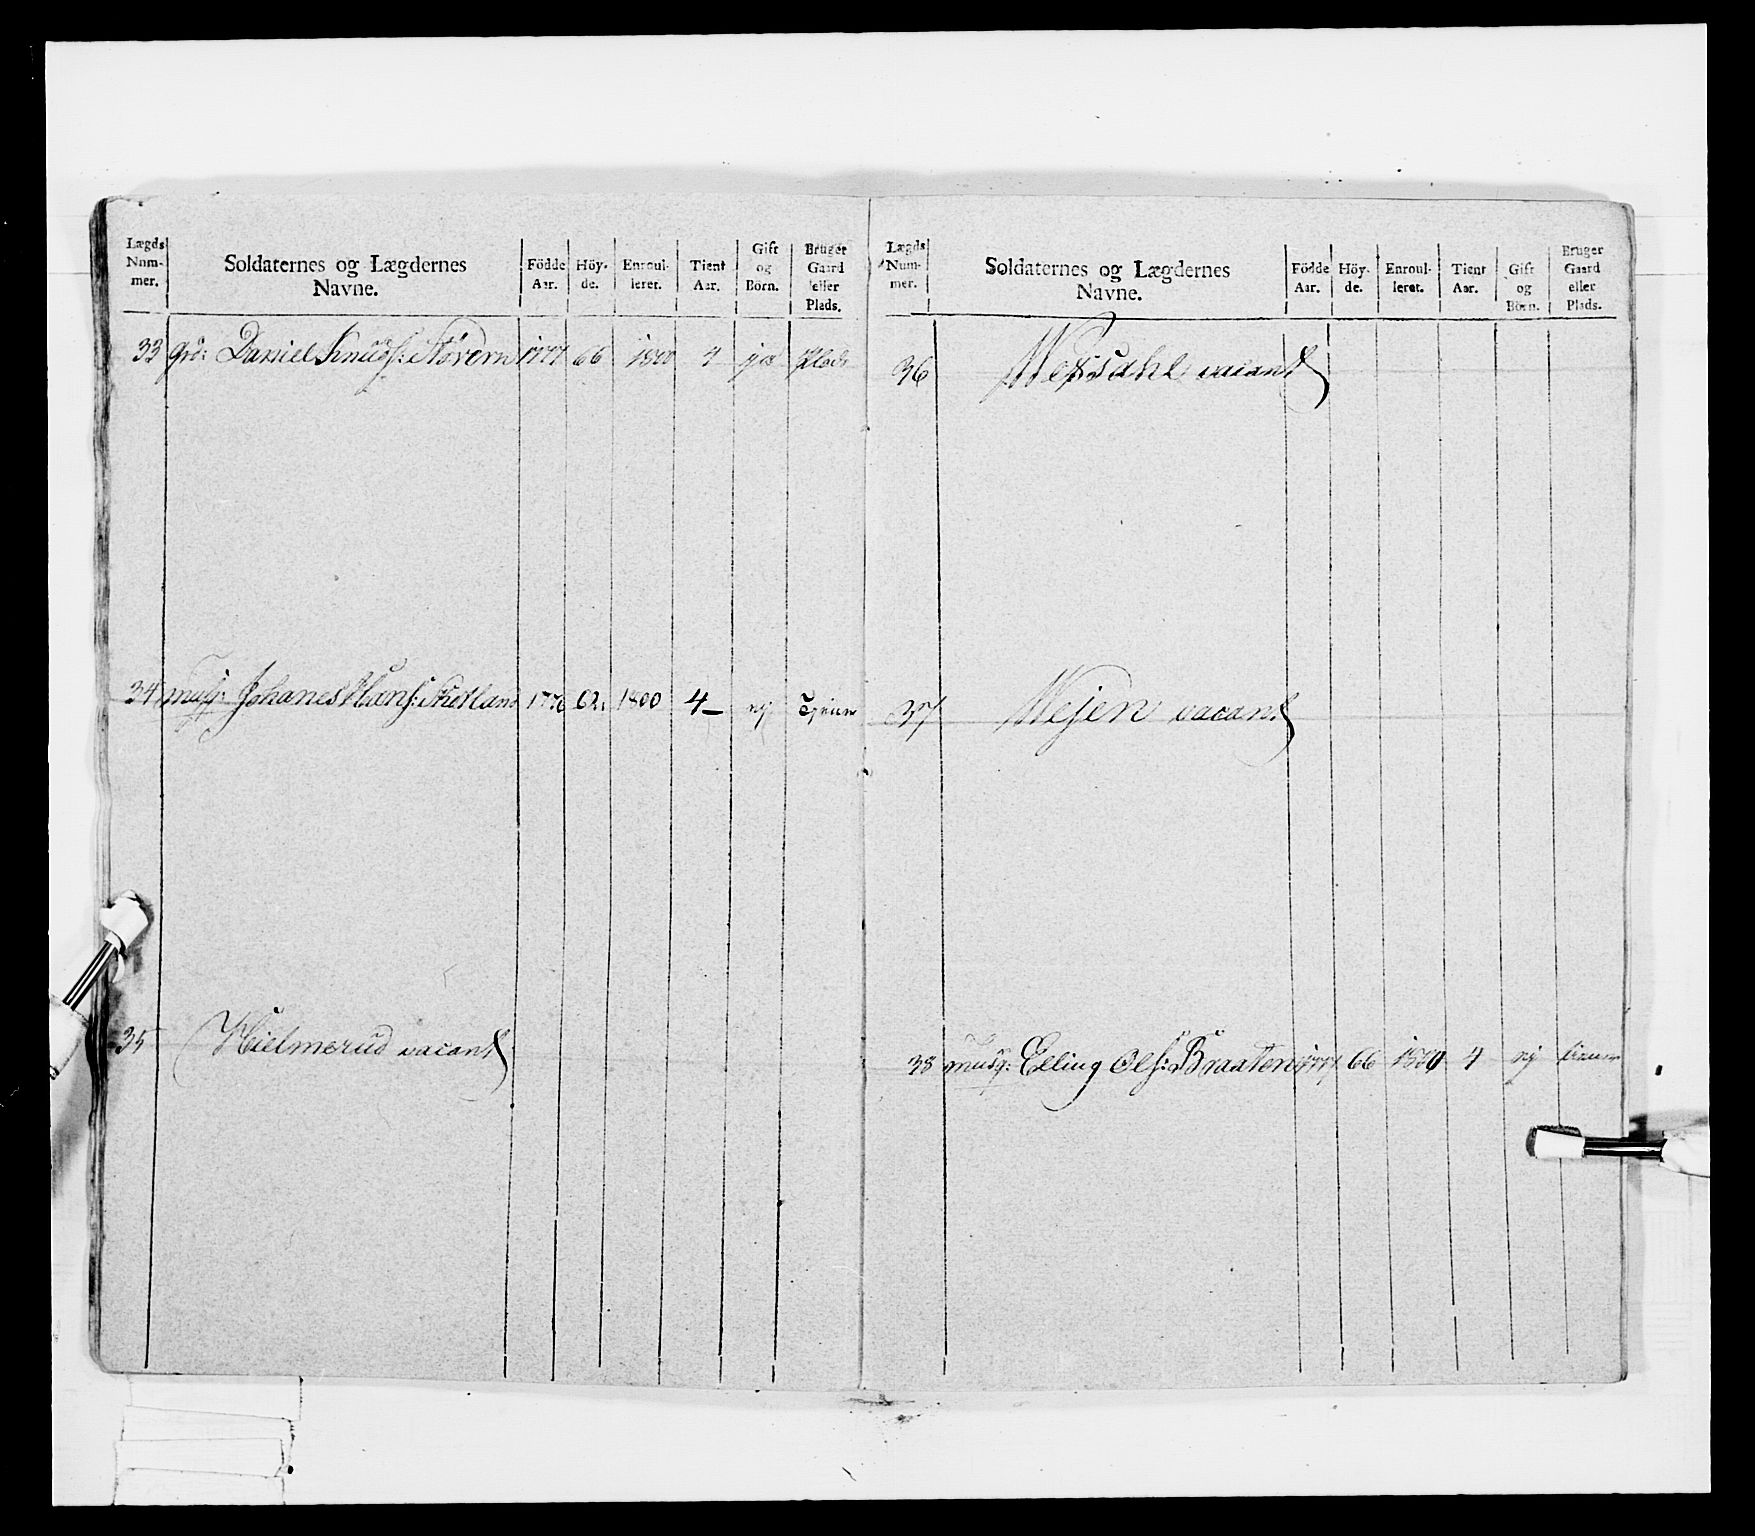 Lægds Num- mer. Soldaternes og Lægdernes Navne. Födde Aar. Höy- de. Enroul- leret. Tient Aar. Gift og Börn. Bruger Gaard eller Plads.
33 Daniel Knuds: 1777 66 1800 4 ja Plads
34 musq: Johanes Hans: 1776 62. 1800 4 ej Tjener
35 Hielmerud vacant
Lægds Num- mer. Soldaternes og Lægdernes Navne. Födde Aar. Höy- de. Enroul- leret. Tient Aar. Gift og Börn. Bruger Gaard eller Plads.
36 vacant
37 Wejen vacant
38 musq: Elling Ols: Braaten 1777 66 1800 4 ej